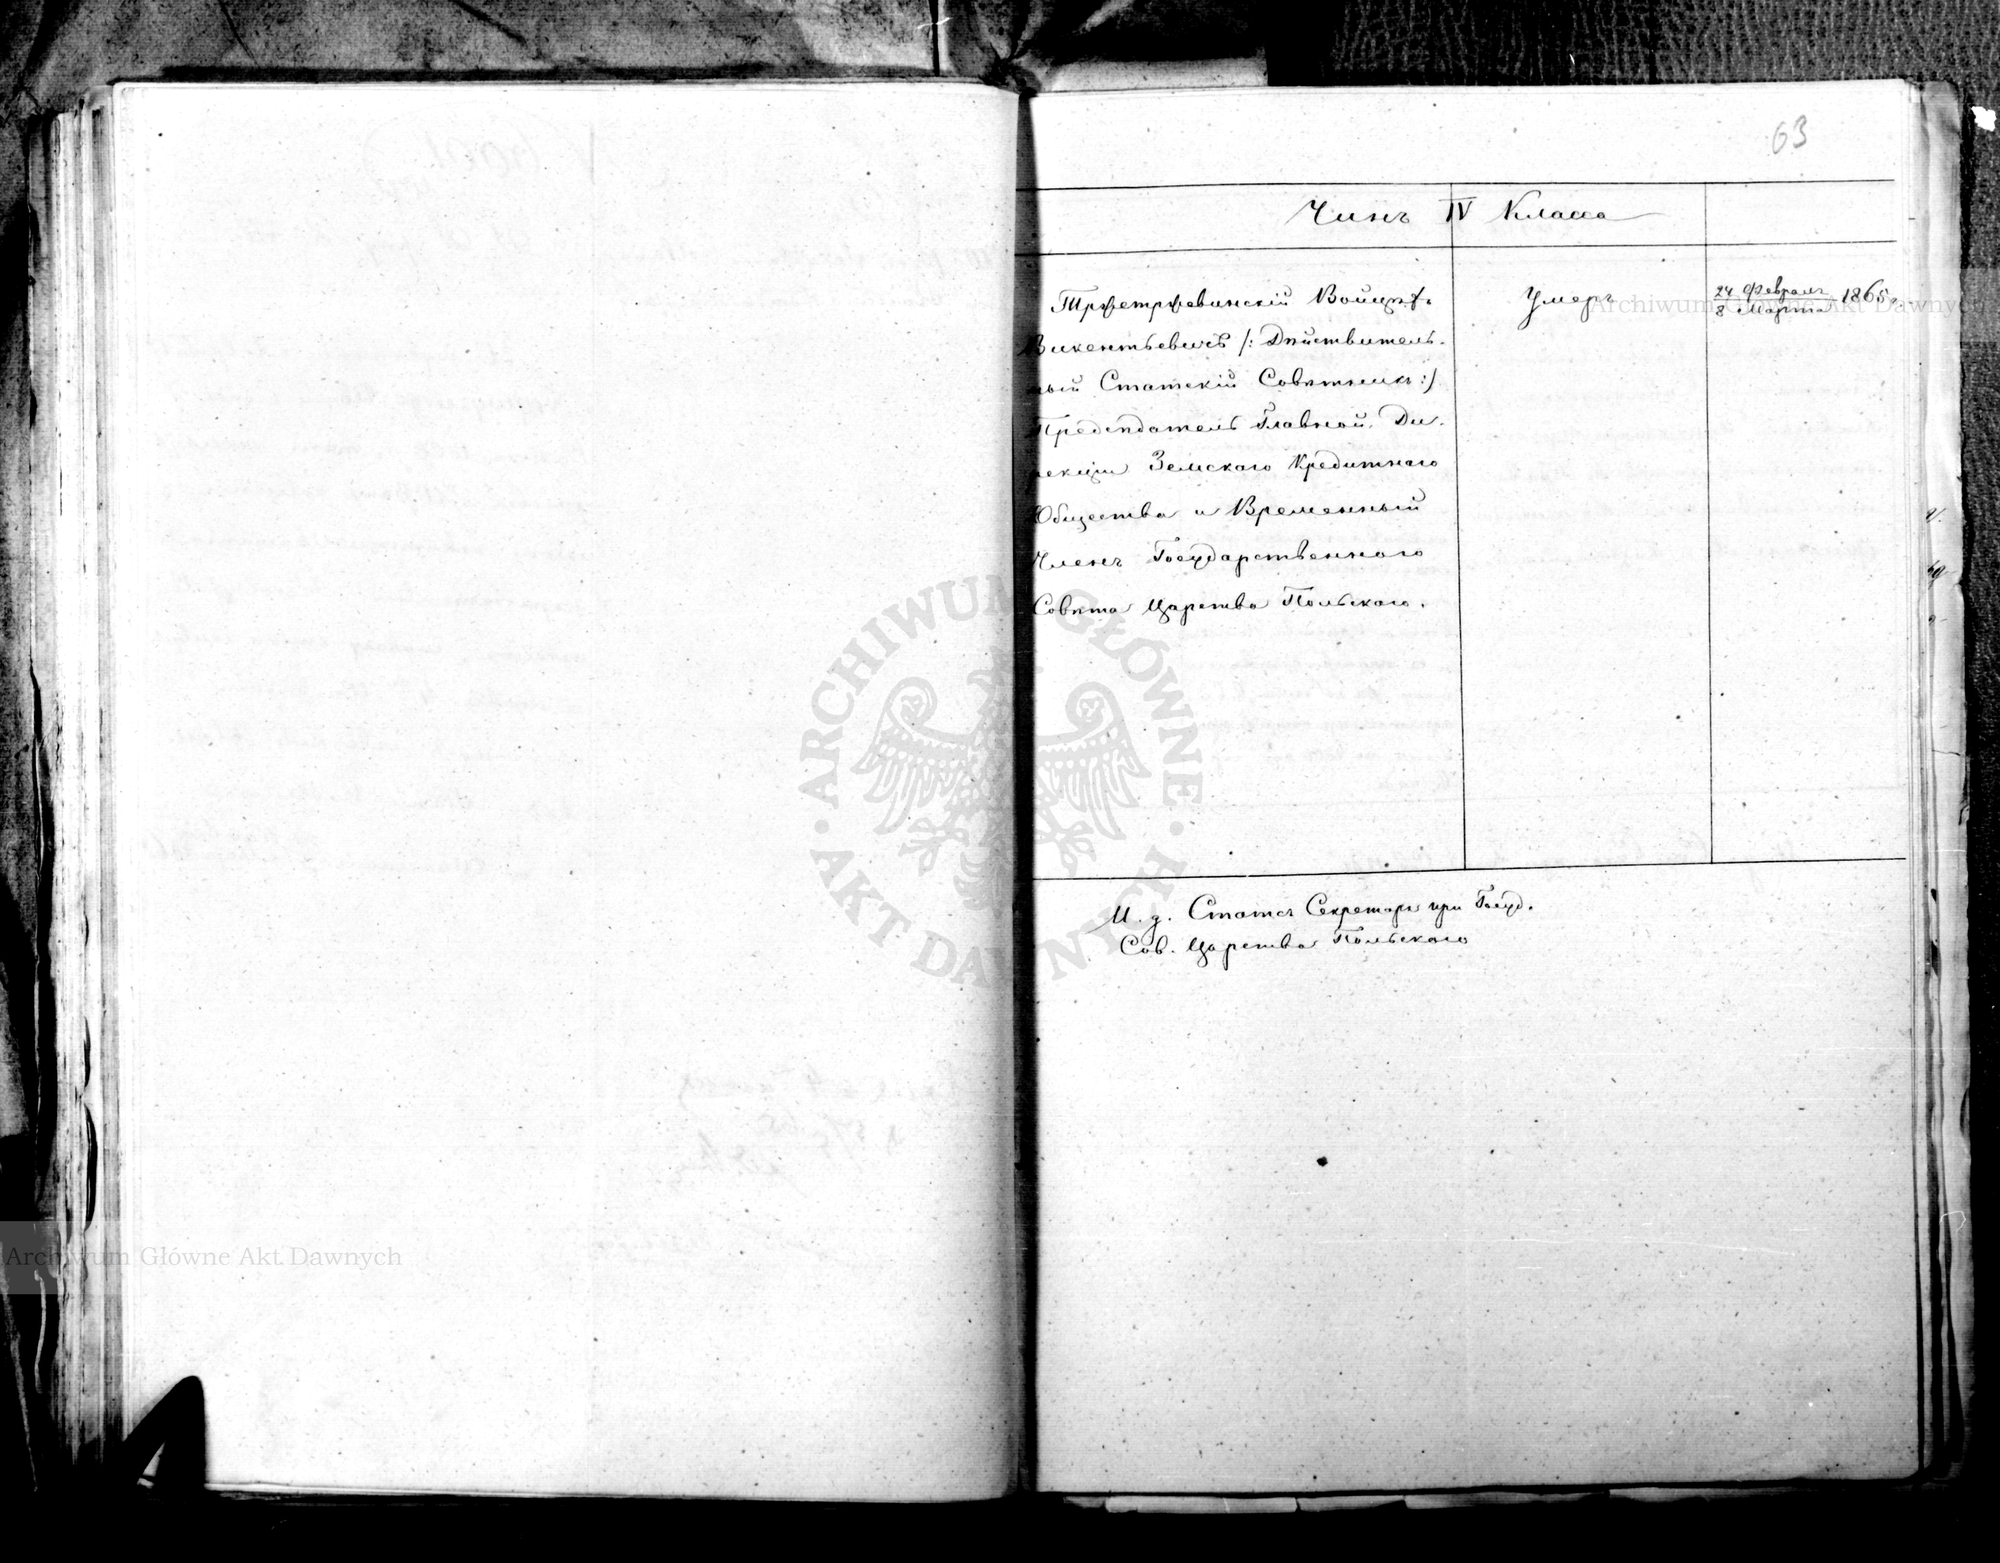 63
Чинъ IV Класса
Тржетржевинскій Войцѣхъ
Викентьевичъ /: Дѣйствитель-
ный Статскій Совѣтникъ :/
Предсѣдатель Главной Ди-
рекціи Земскаго Кредитнаго
Общества и Временный
Членъ Государственнаго
Совѣта Царства Польскаго.
Умеръ
24 Февраля
8 Марта 1865 г.
И. д. Статсъ Секретарь при Госуд.
Сов. Царства Польскаго
ARCHIWUM GŁÓWNE
AKT DAWNYCH
Archiwum Główne Akt Dawnych
Archiwum Główne Akt Dawnych